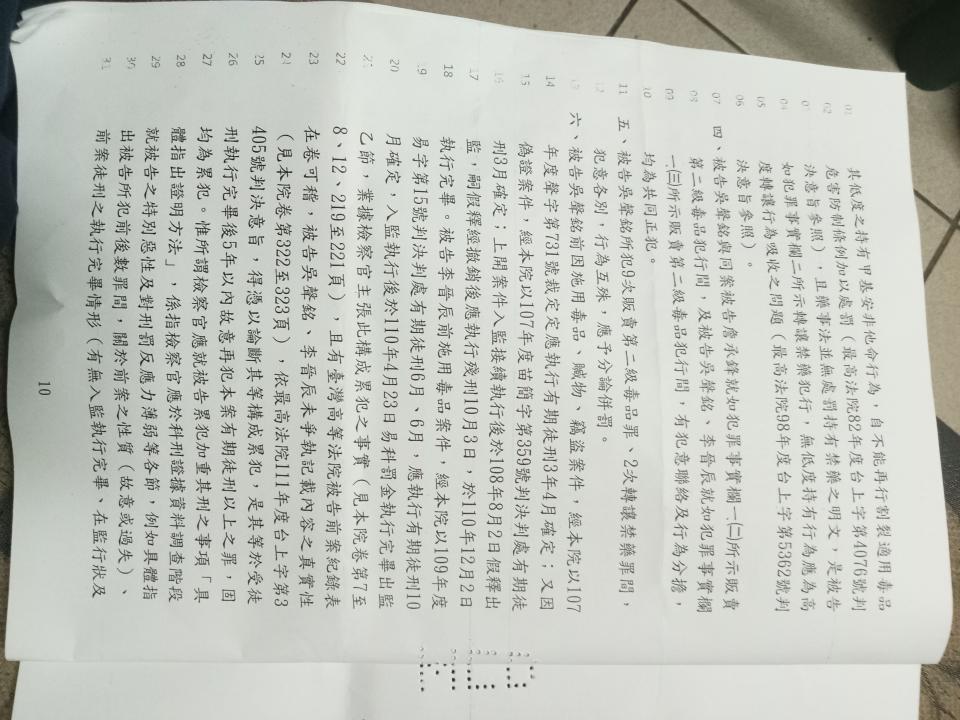 01 其低度之持有甲基安非他命行為，自不能再行割裂適用毒品
02 危害防制條例加以處罰（最高法院82年度台上字第4076號判
03 決意旨參照），且藥事法並無處罰持有禁藥之明文，是被告
04 如犯罪事實欄二所示轉讓禁藥犯行，無低度持有行為應為高
05 度轉讓行為吸收之問題（最高法院98年度台上字第5362號判
06 決意旨參照）。
07 四、被告吳聲銘與同案被告詹承鋒就如犯罪事實欄一㈡所示販賣
08 第二級毒品犯行間，及被告吳聲銘、李晉辰就如犯罪事實欄
09 一㈢所示販賣第二級毒品犯行間，有犯意聯絡及行為分擔，
10 均為共同正犯。
11 五、被告吳聲銘所犯9次販賣第二級毒品罪、2次轉讓禁藥罪間，
12 犯意各別，行為互殊，應予分論併罰。
13 六、被告吳聲銘前因施用毒品、贓物、竊盜案件，經本院以107
14 年度聲字第731號裁定定應執行有期徒刑3年4月確定；又因
15 偽證案件，經本院以107年度苗簡字第359號判決判處有期徒
16 刑3月確定；上開案件入監接續執行後於108年8月2日假釋出
17 監，嗣假釋經撤銷後應執行殘刑10月3日，於110年12月2日
18 執行完畢。被告李晉辰前施用毒品案件，經本院以109年度
19 易字第15號判決判處有期徒刑6月、6月，應執行有期徒刑10
20 月確定，入監執行後於110年4月23日易科罰金執行完畢出監
21 乙節，業據檢察官主張此構成累犯之事實（見本院卷第7至
22 8、12、219至221頁），且有臺灣高等法院被告前案紀錄表
23 在卷可稽，被告吳聲銘、李晉辰未爭執記載內容之真實性
24 （見本院卷第322至323頁），依最高法院111年度台上字第3
25 405號判決意旨，得憑以論斷其等構成累犯，是其等於受徒
26 刑執行完畢後5年以內故意再犯本案有期徒刑以上之罪，固
27 均為累犯。惟所謂檢察官應就被告累犯加重其刑之事項「具
28 體指出證明方法」，係指檢察官應於科刑證據資料調查階段
29 就被告之特別惡性及對刑罰反應力薄弱等各節，例如具體指
30 出被告所犯前後數罪間，關於前案之性質（故意或過失）、
31 前案徒刑之執行完畢情形（有無入監執行完畢、在監行狀及
10